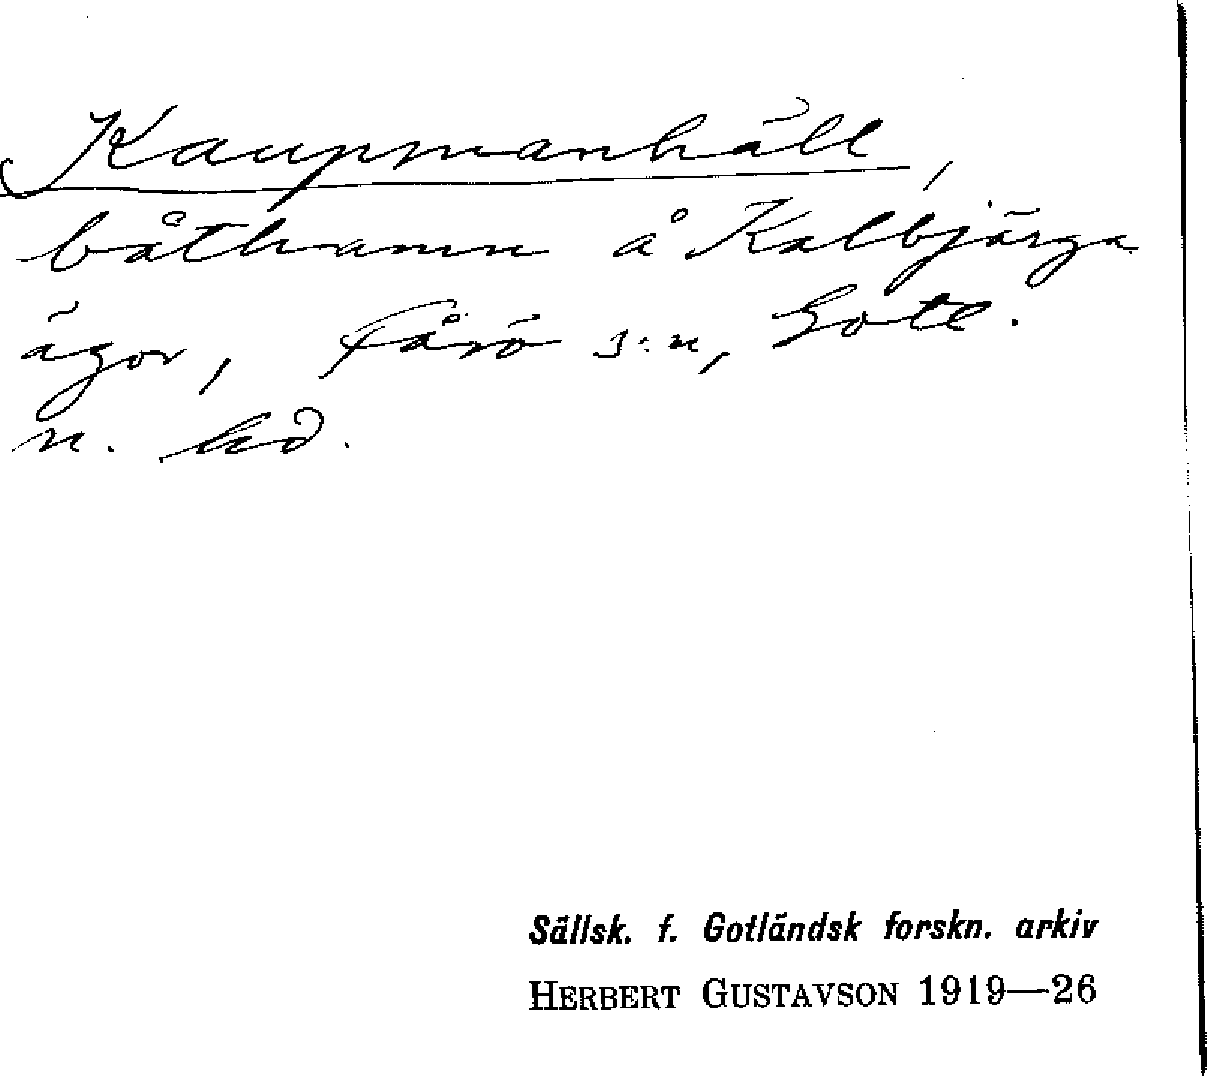 Kaupmanhäll,
båthamn å Kalbjärga
ägor, Fårö s:n, Gotl.
n. hd.
Sällsk. f. Gotländsk forskn. arkiv
HERBERT GUSTAVSON 1919—26